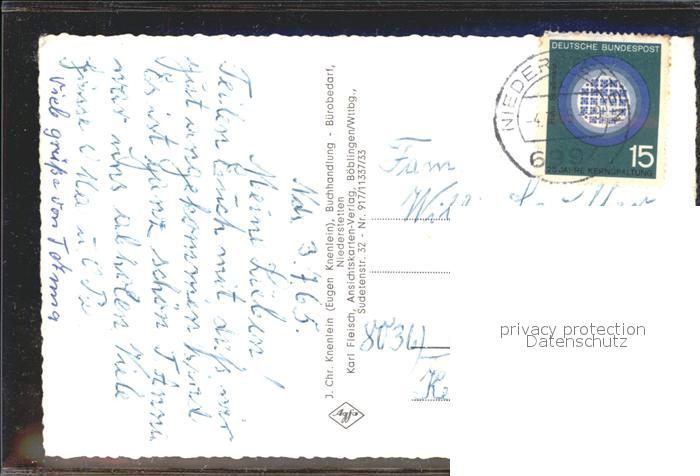 Nds. 3.7.65.
Meine Lieben!
Teilen Euch mit daß wir
gut angekommen sind
Es ist ganz schön
war uns abholen Viele
Grüsse
Viele grüße von
J. Chr. Knenlein (Eugen Knenlein), Buchhandlung - Bürobedarf,
Niederstetten
Karl Fleisch, Ansichtskarten-Verlag, Böblingen/Wttbg.,
Sudetenstr. 32 - Nr. 917/11337/33
Agfa
DEUTSCHE BUNDESPOST
15
25 JAHRE KERNSPALTUNG
NIEDER
-4.
699
Fam
8036
privacy protection
Datenschutz